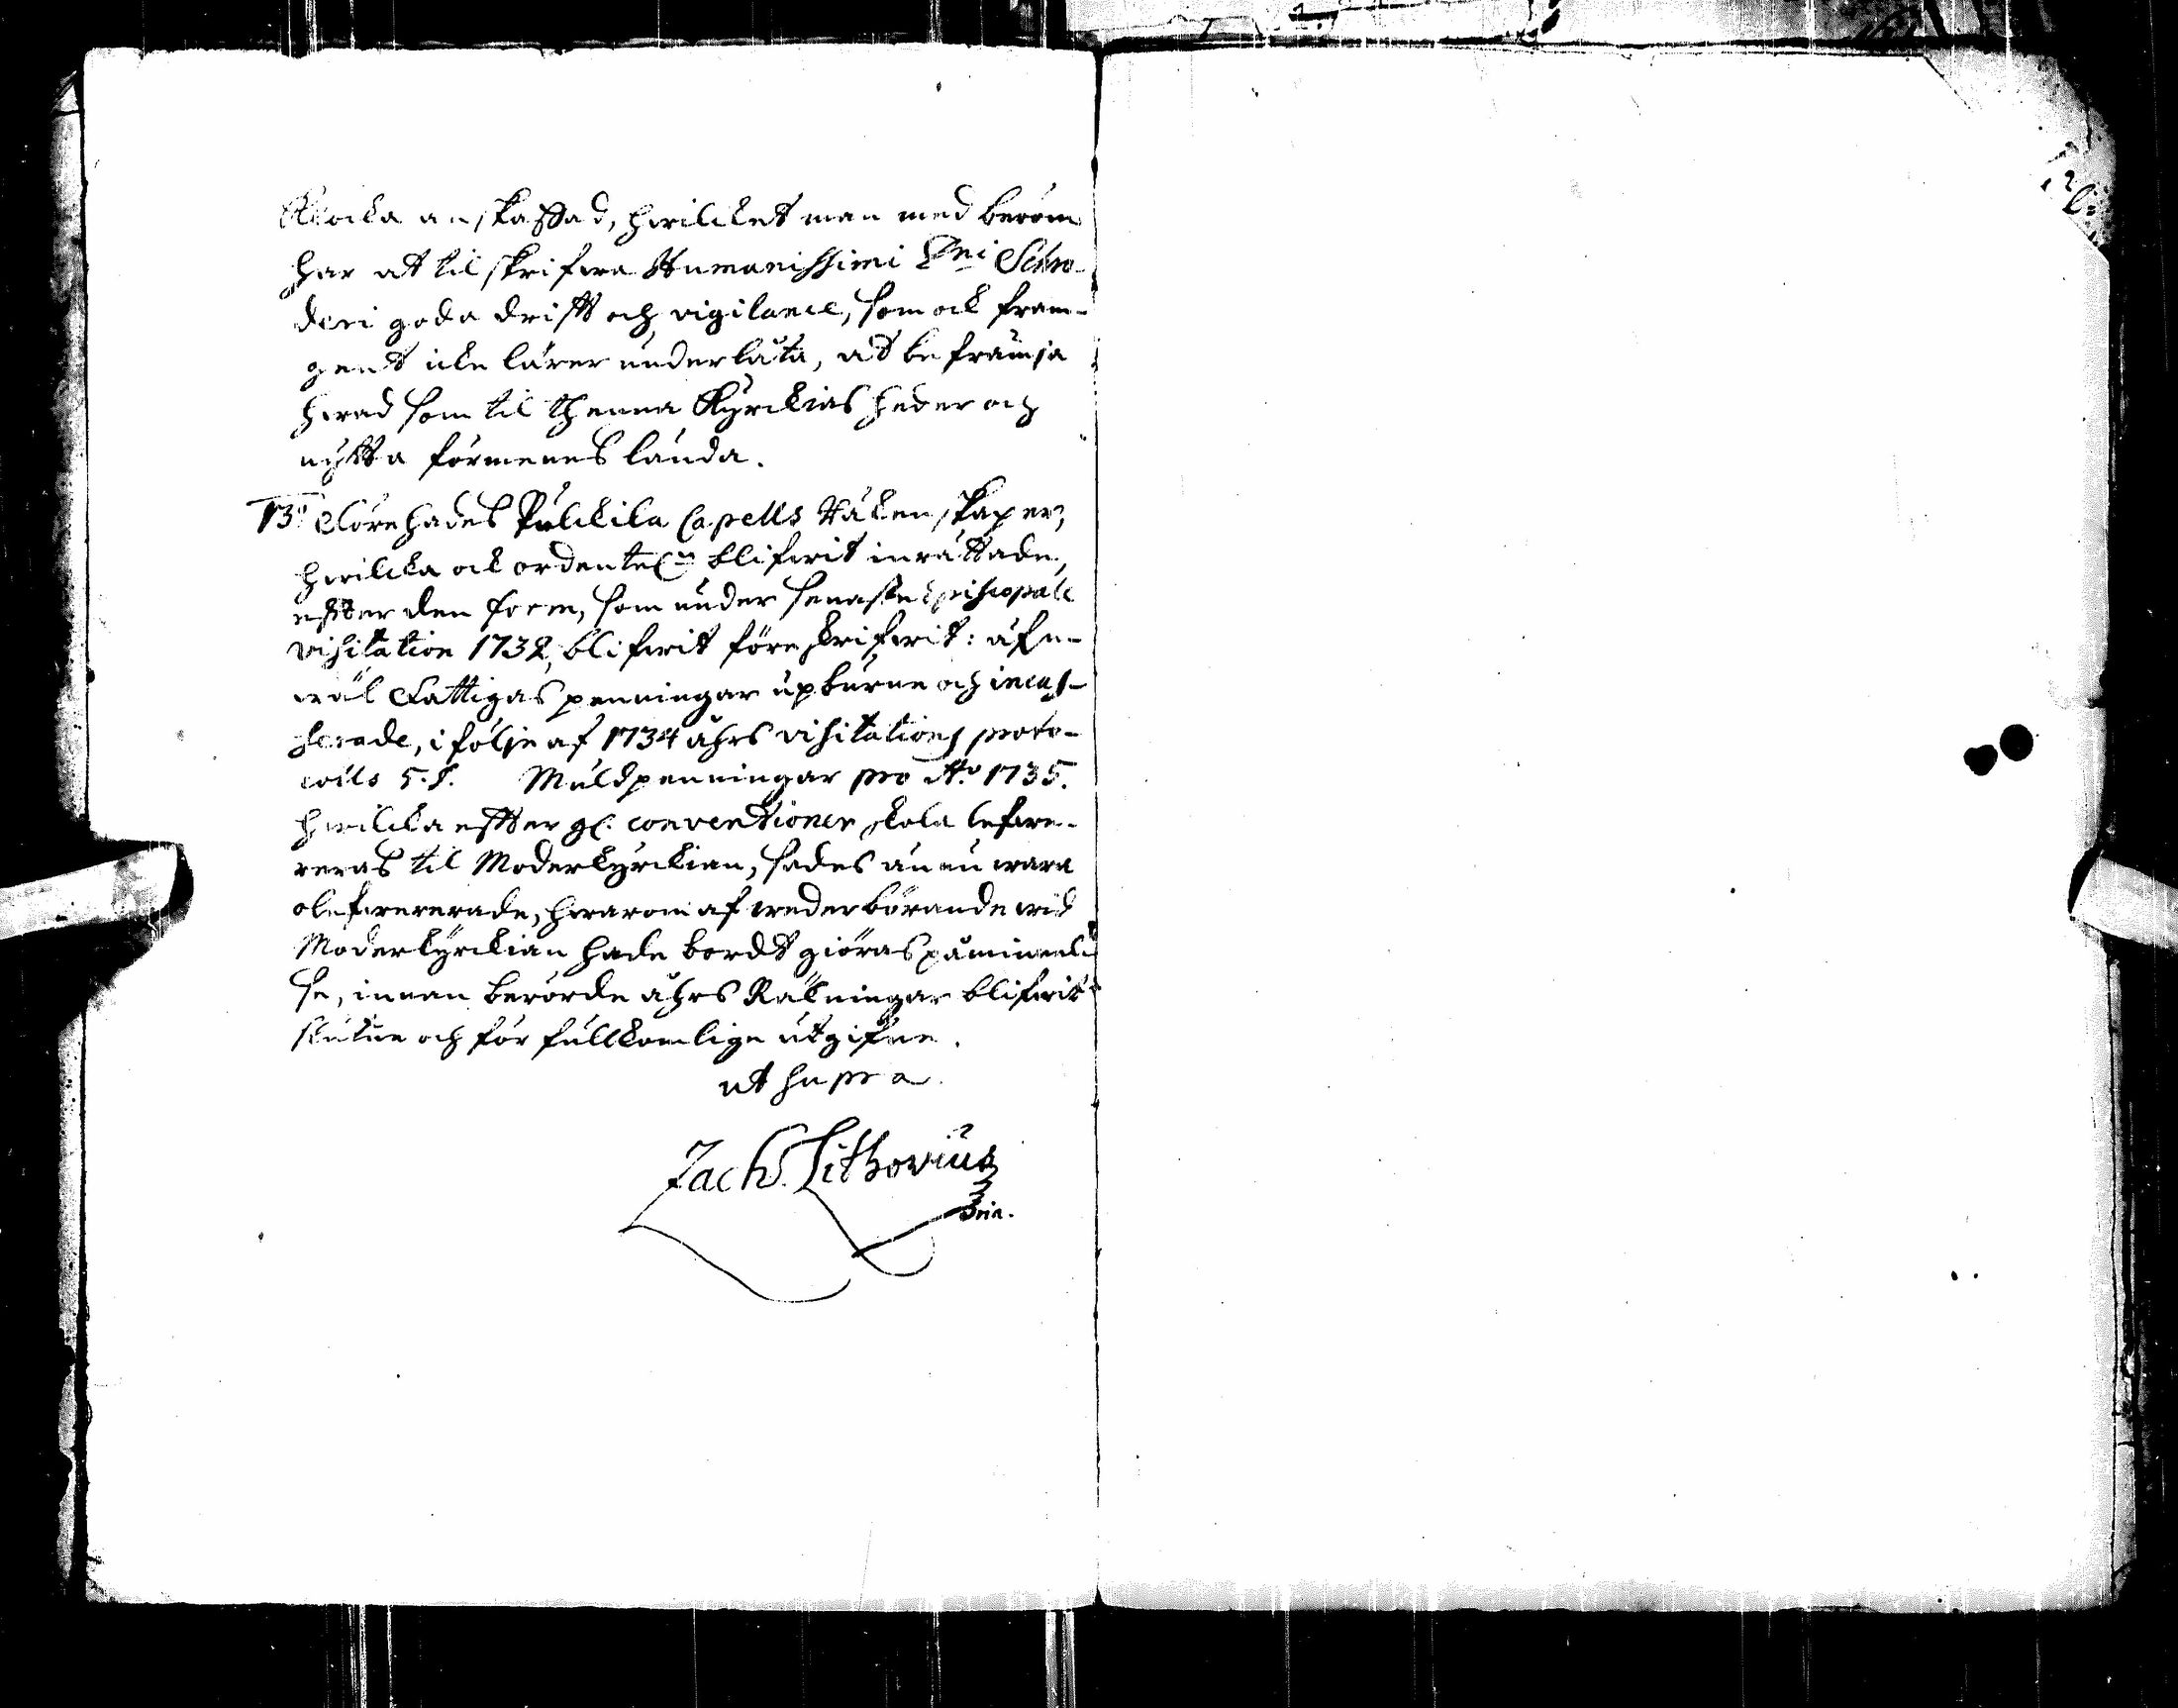 Klocka anskaffad, hwilcket man med beröm
har at tilskrifwa Humanissimi Dni Schro-
deri goda drift och vigilance, som ock fram-
gent icke lärer underlåta, at befrämja
hwad som til thenna Kyrckias heder och
nytta förmenes lända.
13:o Förehades Pulckila Capells Räkenskaper,
hwilcka ock ordentel:n blifwit inrättade,
efter den form, som under senaste Episcopale
visitation 1732, blifwit föreskrifwit: äfwe-
wäl Fattigas penningar upburne och incas-
serade, i följe af 1734 åhrs visitations proto-
colls 5. §. Mullpenningar pro A:o 1735.
hwilcka efter gl. conventioner skola lefwe-
reras til Moderkyrckian, sades ännu wara
olefwererade, hwarom af wederbörande wid
Moderkyrckian hade bordt giöras påminnel-
se, innan berörde åhrs Räkningar blifwit
slutne och för fullkomlige utgifne.
ut supra
Zach. Lithovius
mia.